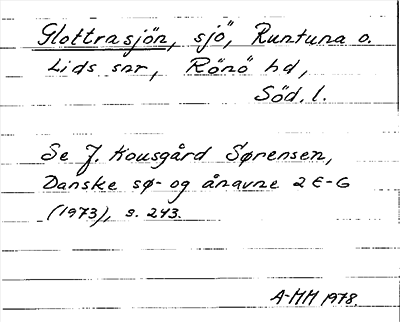 Glottrasjön, sjö, Runtuna o.
Lids snr, Rönö hd,
Söd. l.
Se J. Kousgård Sørensen,
Danske sø- og ånavne 2 E-G
(1973), s. 243.
A-MM 1978.